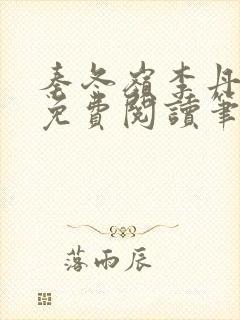 秦冬嶺李丹
免費閱讀筆
落雨辰